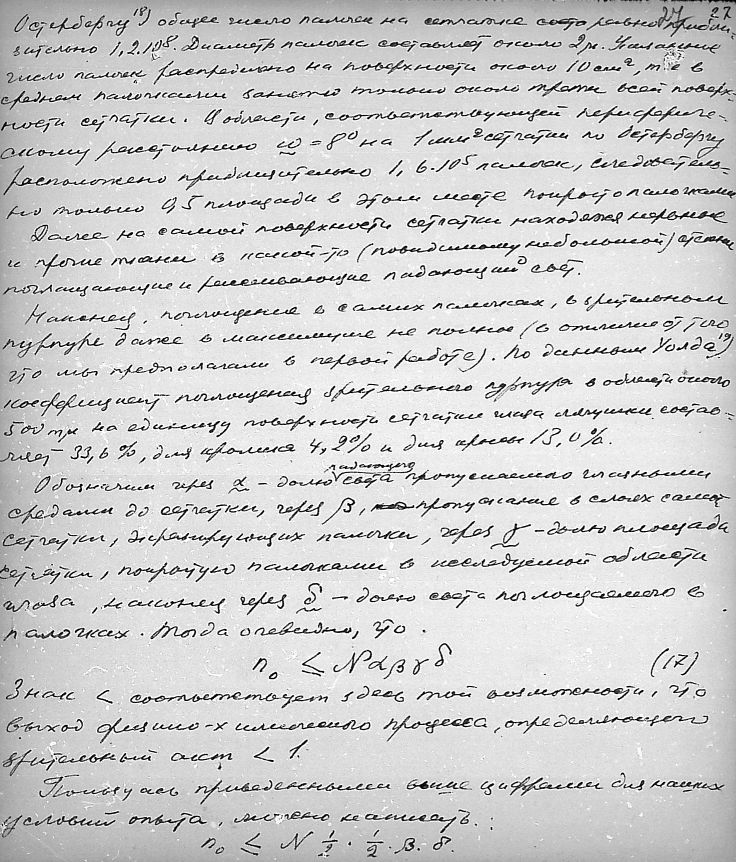 27 27
Остербергу 18) общее число палочек на сетчатке составляет прибли-
зительно 1,2.10⁸. Диаметр палочек составляет около 2μ. Указанное
число палочек распределено на поверхности около 10 см², т.е. в
среднем палочками занято только около трети всей поверх-
ности сетчатки. В области, соответствующей перифериче-
скому расстоянию ω = 8° на 1 мм² сетчатки по Остербергу
расположено приблизительно 1,6.10⁵ палочек, следователь-
но только 0,5 площади в этом месте покрыто палочками
Далее на самой поверхности сетчатки находятся нервные
и прочие ткани в какой-то (повидимому небольшой) степени
поглощающие и рассеивающие падающий свет.
Наконец, поглощение в самих палочках, в зрительном
пурпуре даже в максимуме не полное (в отличие от того
что мы предполагали в первой работе). По данным Уолда 19)
коэффициент поглощения зрительного пурпура в области около
500 mμ на единицу поверхности сетчатки глаза лягушки состав-
ляет 33,6%, для кролика 4,2% и для крысы 13,0%.
Обозначим через α – долю падающего света пропускаемого глазными
средами до сетчатки, через β, пропускание в слоях самой
сетчатки, экранирующих палочки, через γ – долю площади
сетчатки, покрытую палочками в исследуемой области
глаза, наконец через δ – долю света поглощаемого в
палочках. Тогда очевидно, что.
n₀ ≤ Nαβγδ (17)
Знак < соответствует здесь той возможности, что
выход физико-химического процесса, определяющего
зрительный акт < 1.
Пользуясь приведенными выше цифрами для наших
условий опыта, можно написать:
n₀ ≤ N ½ · ½ · β. δ.